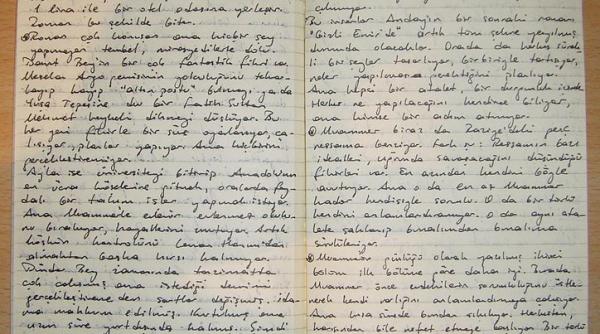 1 lira ile bir otel odasına yerleşir.
Zaman bu şekilde biter.
Roman çok konuşan ama hiçbir şey
yapmayan tembel, mirasyedilerle dolu.
Bey'in bir çok fantastik fikri var.
Mesela Argo gemisinin yolculuğunu tekrar-
layıp "altın postu" bulmayı ya da
Yuşa Tepesi'ne dev bir Fatih Sultan
Mehmet heykeli dikmeyi düşlüyor. Bu
her yeni fikirle bir süre oyalanıyor, ça-
lışıyor, planlar yapıyor. Ama hiçbirini
gerçekleştiremiyor.
ise üniversiteyi bitirip Anadolunun
en ücra köşelerine gitmek, oralarda fay-
dalı bir takım işler yapmak istiyor.
Ama Muammerle evlenir evlenmez okulu-
nu bırakıyor, hayallerini unutuyor. Artık
köşkün kontrolünü Hanımdan
almaktan başka hırsı kalmıyor.
Bey zamanında
çok çalışmış ama istediği devrimi
gerçekleştirene den şartlar değişmiş, ida-
ma mahkum edilmiş. Kurtulmuş ama
uzun süre yurtdışında kalmış. Şimdi
çıkmıyor.
Bu insanlar Andayın bir sonraki romanı
"Gizli Emir"de artık tüm şehre yayılmış
durumda olacaklar. Orada da herkes sürek-
li bir şeyler tasarlıyor, birbiriyle tartışıyor,
neler yapılması gerektiğini planlıyor.
Ama hepsi bir atalet, bir durgunluk içinde
Herkes ne yapılacağını kendince biliyor,
ama kimse bir adım atmıyor.
Muammer biraz da Raziye'deki genç
ressama benziyor. Farkı: Ressamın bazı
idealleri, uğrunda savaşacağını düşündüğü
fikirleri var. En azından kendini böyle
avutuyor. Ama o da en az Muammer
kadar kendisiyle sorunlu. O da bir türlü
kendini anlamlandıramıyor. O da aynı ata-
lete saklanıp bunalımdan bunalıma
sürükleniyor.
Muammer günlüğü olarak yazılmış ikinci
bölüm ilk bölüme göre daha iyi. Burada
Muammer önce evdekilerin sorumluluğunu üstle-
nerek kendi varlığını anlamlandırmaya çalışıyor.
Ama kısa sürede bundan sıkılıyor. Herkesten,
karısından bile nefret etmeye başlıyor. Bir türlü